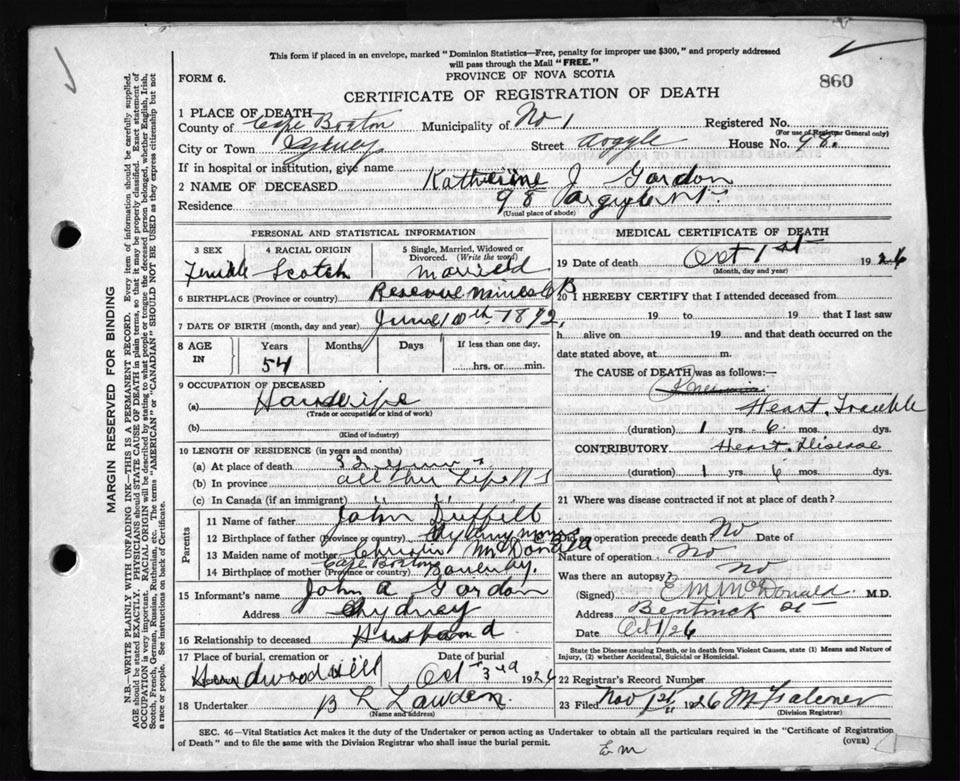 This form if placed in an envelope, marked "Dominion Statistics—Free, penalty for improper use $300," and properly addressed
will pass through the Mail "FREE."
PROVINCE OF NOVA SCOTIA
FORM 6.
860
CERTIFICATE OF REGISTRATION OF DEATH
1 PLACE OF DEATH—
County of Cape Breton Municipality of No 1 Registered No.
(For use of Registrar General only)
City or Town Sydney Street Argyle House No. 98.
If in hospital or institution, give name
2 NAME OF DECEASED Katherine J Gordon
Residence 98 Argyle St.
(Usual place of abode)
PERSONAL AND STATISTICAL INFORMATION
3 SEX 4 RACIAL ORIGIN 5 Single, Married, Widowed or Divorced. (Write the word)
Female Scotch married
6 BIRTHPLACE (Province or country) Reserve Mines C B
7 DATE OF BIRTH (month, day and year) June 10th. 1872,
8 AGE IN Years Months Days If less than one day,
54 hrs. or min.
9 OCCUPATION OF DECEASED
(a) Housewife
(Trade or occupation or kind of work)
(b)
(Kind of industry)
10 LENGTH OF RESIDENCE (in years and months)
(a) At place of death 32 years
(b) In province all her Life N S
(c) In Canada (if an immigrant) " "
Parents
11 Name of father John
12 Birthplace of father (Province or country) Sydney mines
13 Maiden name of mother Christie McDonald
14 Birthplace of mother (Province or country) Cape Breton
15 Informant's name John A Gordon
Address Sydney
16 Relationship to deceased Husband
17 Place of burial, cremation or Date of burial
Hardwoodhill Oct 3rd 1926
18 Undertaker B L
(Name and address)
MEDICAL CERTIFICATE OF DEATH
19 Date of death Oct 1st 1926
(Month, day and year)
20 I HEREBY CERTIFY that I attended deceased from
19 to 19 that I last saw
h alive on 19 and that death occurred on the
date stated above, at m.
The CAUSE of DEATH was as follows:—
Heart Trouble
(duration) 1 yrs. 6 mos. dys.
CONTRIBUTORY Heart Disease
(duration) 1 yrs 6 mos. dys.
21 Where was disease contracted if not at place of death?
Did an operation precede death? No Date of
Nature of operation No
Was there an autopsy? No
(Signed) E M McDonald M.D.
Address Bentinck St
Date Oct 1/26
State the Disease causing Death, or in death from Violent Causes, state (1) Means and Nature of
Injury, (2) whether Accidental, Suicidal or Homicidal.
22 Registrar's Record Number
23 Filed Nov 1st 1926
(Division Registrar)
SEC. 46—Vital Statistics Act makes it the duty of the Undertaker or person acting as Undertaker to obtain all the particulars required in the "Certificate of Registration
of Death" and to file the same with the Division Registrar who shall issue the burial permit.
(OVER)
E M
MARGIN RESERVED FOR BINDING
N.B.—WRITE PLAINLY WITH UNFADING INK—THIS IS A PERMANENT RECORD. Every item of information should be carefully supplied.
AGE should be stated EXACTLY. PHYSICIANS should STATE CAUSE OF DEATH in plain terms, so that it may be properly classified. Exact statement of
OCCUPATION is very important. RACIAL ORIGIN will be described by stating to what people or tongue the deceased person belonged, whether English, Irish,
Scotch, French, German, Russian, Ruthenian, etc. The terms "AMERICAN" or "CANADIAN" SHOULD NOT BE USED as they express citizenship but not
a race or people. See instructions on back of Certificate.